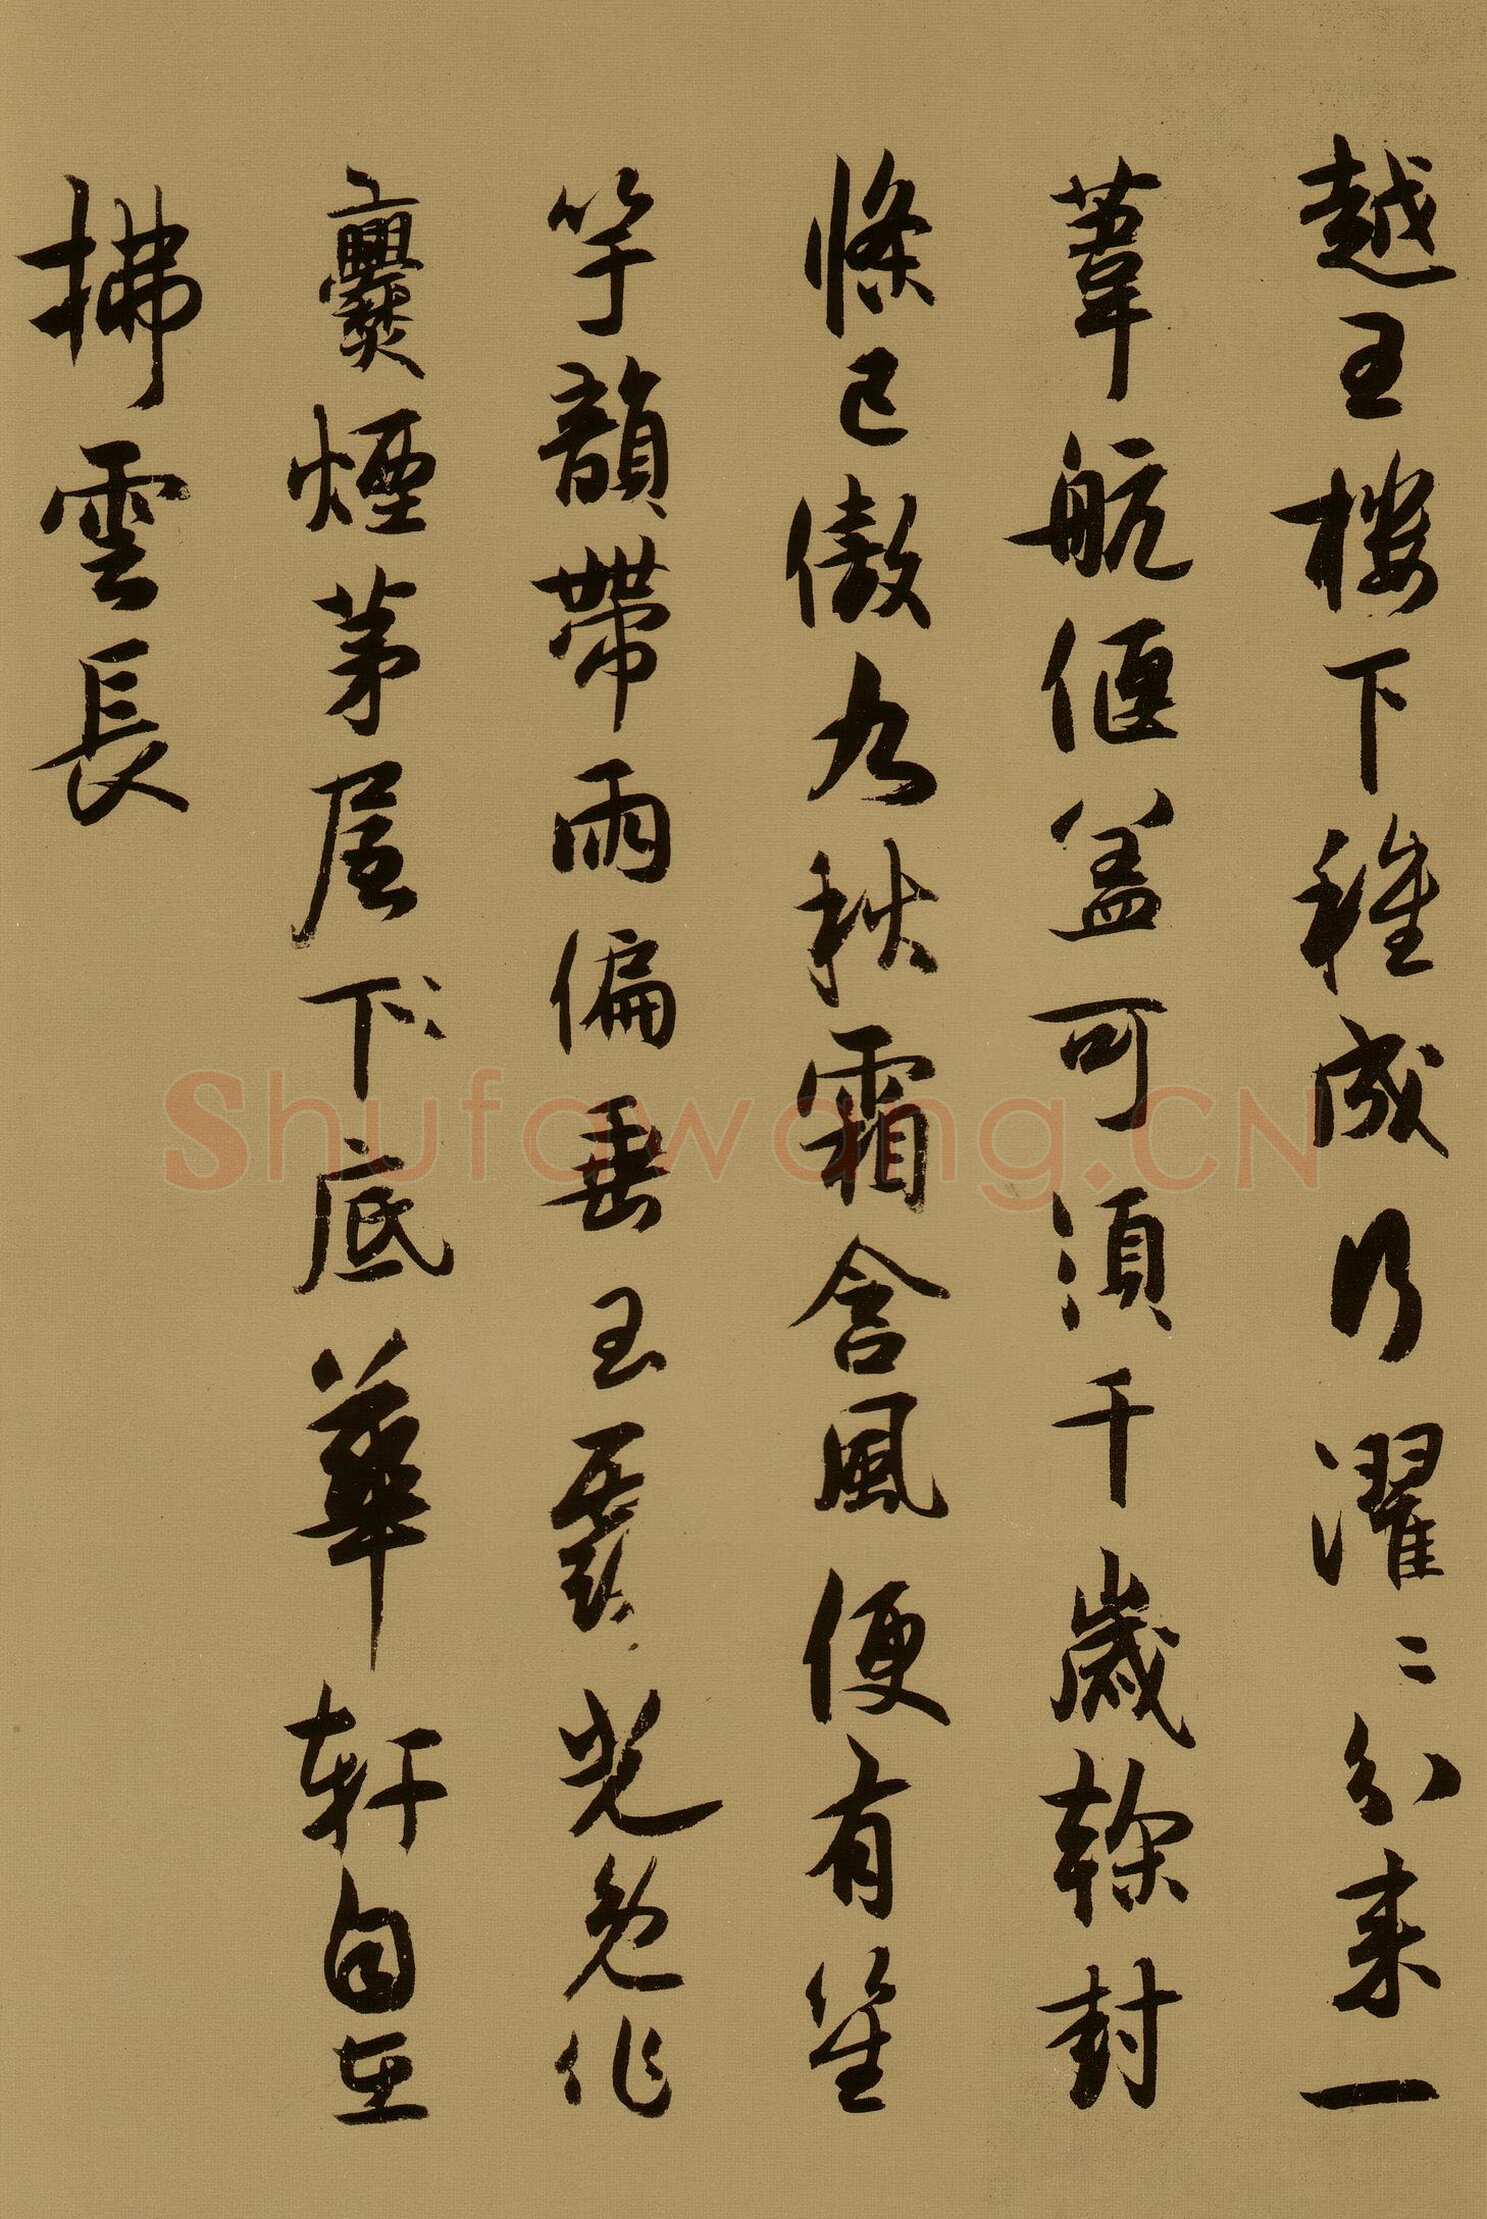 越王樓下種成行濯〻分來一
葦航偃蓋可須千歲幹封
條已傲九秋霜含風便有笙
竽韻帶雨偏垂玉露光免作
爨煙茅屋下〻底華軒自在
拂雲長
Shufawang.CN